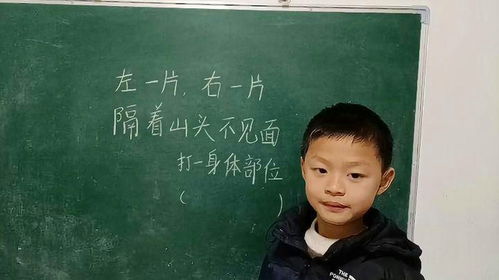 左一片，右一片
隔着山头不见面
打一身体部位
(　　　)
THE